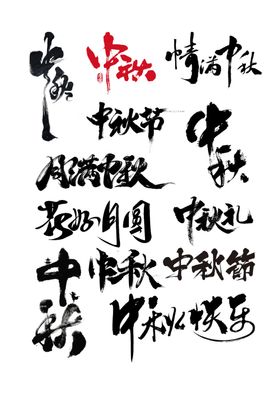 中秋
中秋
情满中秋
中秋节
中秋
月满中秋
花好月圆
中秋礼
中秋
中秋
中秋節
中秋快乐